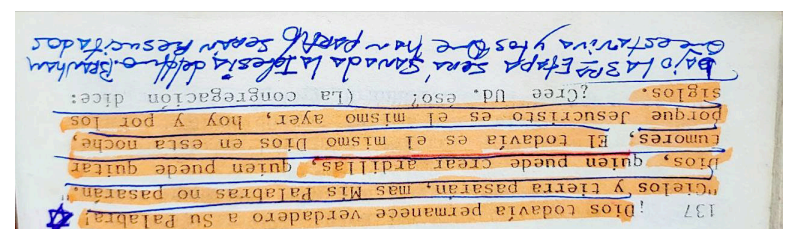 137 ¡Dios todavía permanece verdadero a Su Palabra!
"Cielos y tierra pasarán, mas Mis Palabras no pasarán."
Dios, quien puede crear ardillas, quien puede quitar
tumores, El todavía es el mismo Dios en esta noche,
porque Jesucristo es el mismo ayer, hoy y por los
siglos. ¿Cree Ud. eso? (La congregación dice:
BAJO LA 3RA ETAPA SERÁ SANADA LA IGLESIA del Hno. BRANHAM
Que esta viva y los Que han SERÁN RESUCITADOS